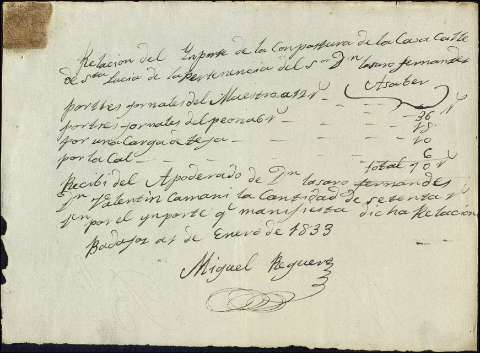 Relacion del Ynporte de la Conpostura de la Casa Calle
de Sta Lucia de la Pertenencia del Sor Dn lasaro fernandes
Asaber
por tres jornales del Maestro a 12 r - - - - 36 r
por tres jornales del peon a 6 r - - - - 18
por una Carga de teja - - - - 10
por la Cal - - - - 6
total 70 r
Recibi del Apoderado de Dn lasaro fernandes
Dn Valentin Camani la Cantidad de setenta r
von por el ynporte qe manifiesta dicha Relacion
Badajoz de Enero de 1833
Miguel Reguera